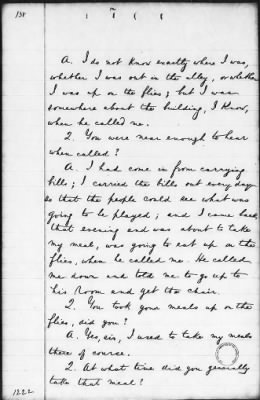 138
A. I do not know exactly where I was,
whether I was out in the alley, or whether
I was up on the flies; but I was
somewhere about the building, I know,
when he called me.
Q. You were near enough to hear
when called?
A. I had come in from carrying
bills; I carried the bills out every day
so that the people could see what was
going to be played; and I came back
that evening and was about to take
my meal, was going to eat up on the
flies, when he called me. He called
me down and told me to go up to
his Room and get the chair.
Q. You took your meals up on the
flies, did you?
A. Yes, sir, I used to take my meals
there of course.
Q. At what time did you generally
take that meal?
1222